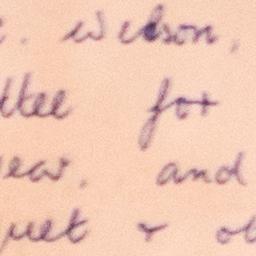 . Wilson,
ttee for
year, and
quet & ob